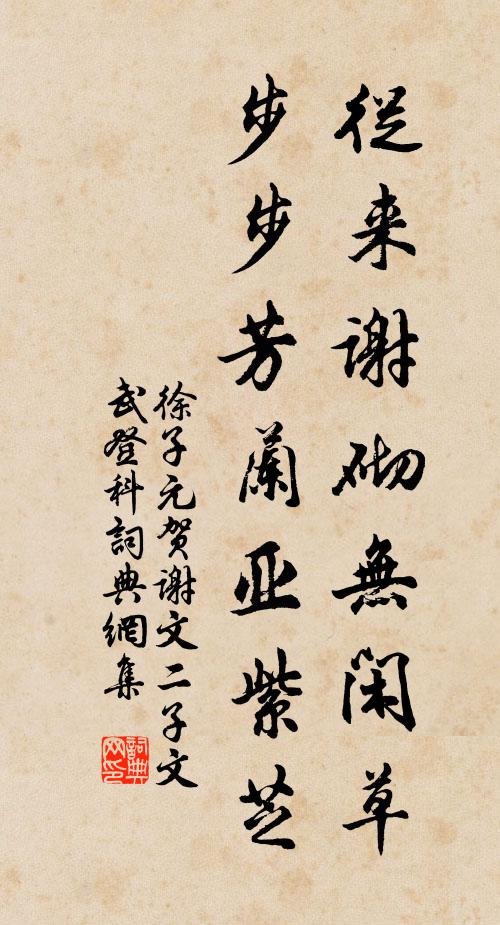 從来谢砌無閑草
步步芳蘭亚紫芝
徐子元贺谢文二子文
武登科詞典網集
詞典网印